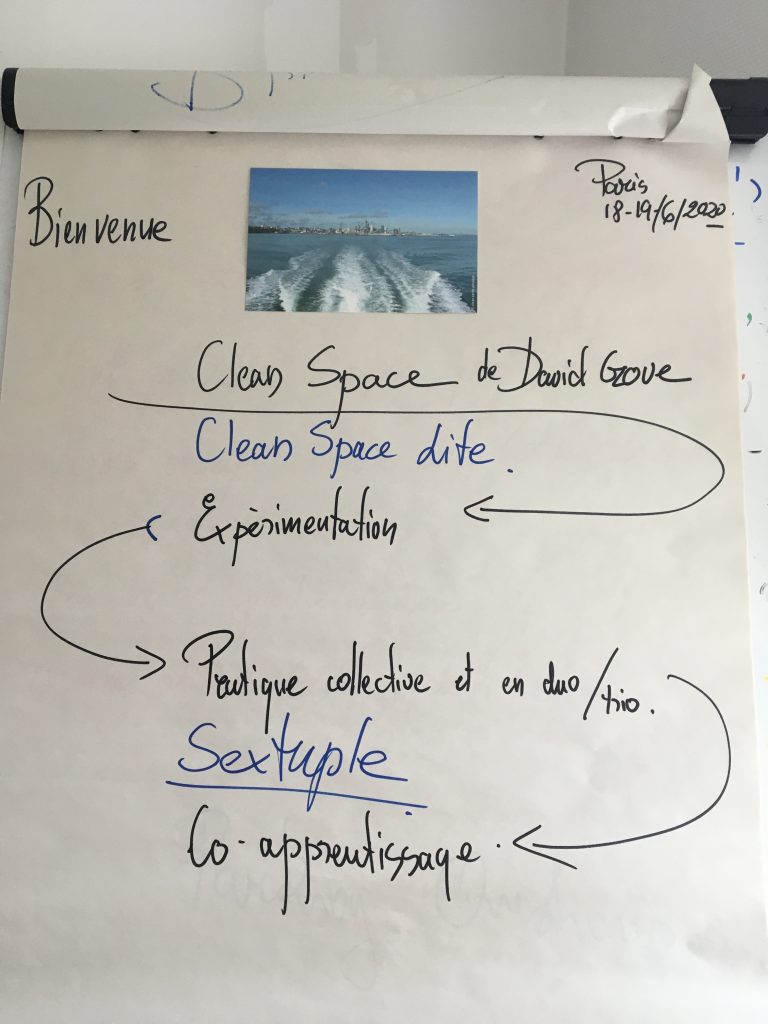 Bienvenue
Paris
18-19/6/2020
Clean Space de David Grove
Clean Space dite.
Expérimentation
Pratique collective et en duo/trio.
Sextuple
Co-apprentissage.